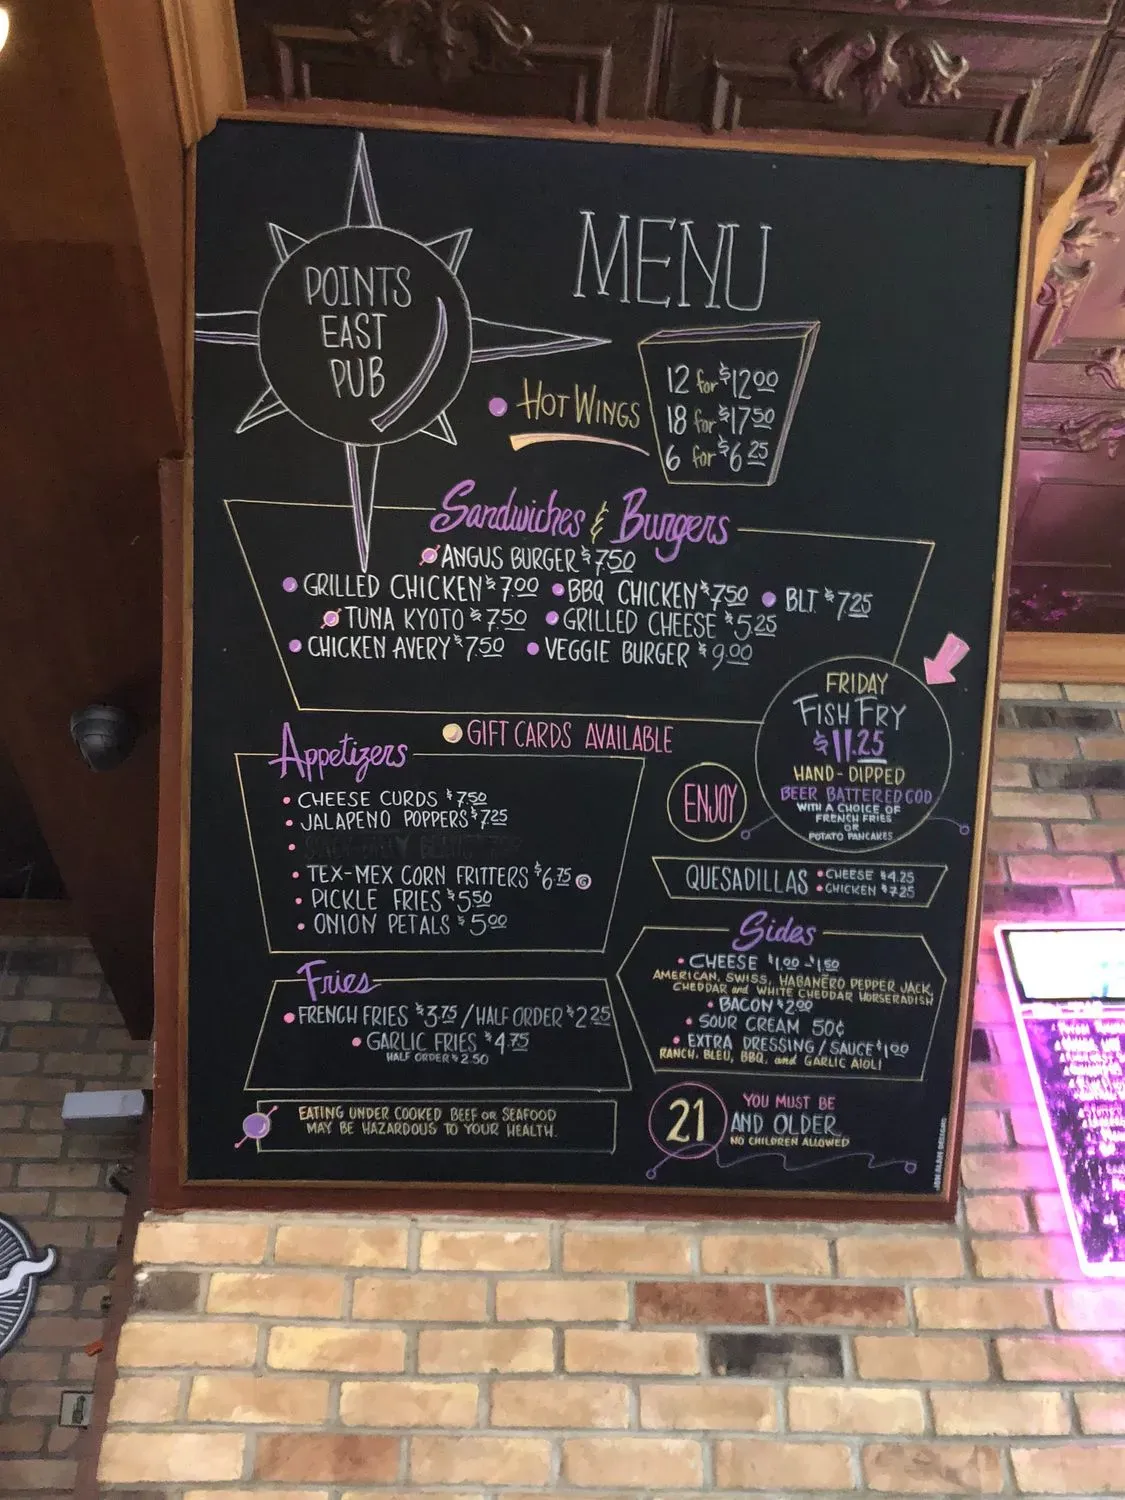 POINTS
EAST
PUB
MENU
HOT WINGS
12 for $12.00
18 for $17.50
6 for $6.25
Sandwiches & Burgers
ANGUS BURGER $7.50
GRILLED CHICKEN $7.00 BBQ CHICKEN $7.50 BLT $7.25
TUNA KYOTO $7.50 GRILLED CHEESE $5.25
CHICKEN AVERY $7.50 VEGGIE BURGER $9.00
GIFT CARDS AVAILABLE
FRIDAY
FISH FRY
$11.25
HAND-DIPPED
BEER BATTERED COD
WITH A CHOICE OF
FRENCH FRIES
OR
POTATO PANCAKES
ENJOY
Appetizers
CHEESE CURDS $7.50
JALAPENO POPPERS $7.25
TEX-MEX CORN FRITTERS $6.75 G
PICKLE FRIES $5.50
ONION PETALS $5.00
QUESADILLAS
CHEESE $4.25
CHICKEN $7.25
Fries
FRENCH FRIES $3.75/HALF ORDER $2.25
GARLIC FRIES $4.75
HALF ORDER $2.50
Sides
CHEESE $1.00-$1.50
AMERICAN, SWISS, HABANERO PEPPER JACK,
CHEDDAR and WHITE CHEDDAR HORSERADISH
BACON $2.00
SOUR CREAM 50¢
EXTRA DRESSING/SAUCE $1.00
RANCH, BLEU, BBQ, and GARLIC AIOLI
EATING UNDER COOKED BEEF OR SEAFOOD
MAY BE HAZARDOUS TO YOUR HEALTH.
21
YOU MUST BE
AND OLDER
NO CHILDREN ALLOWED